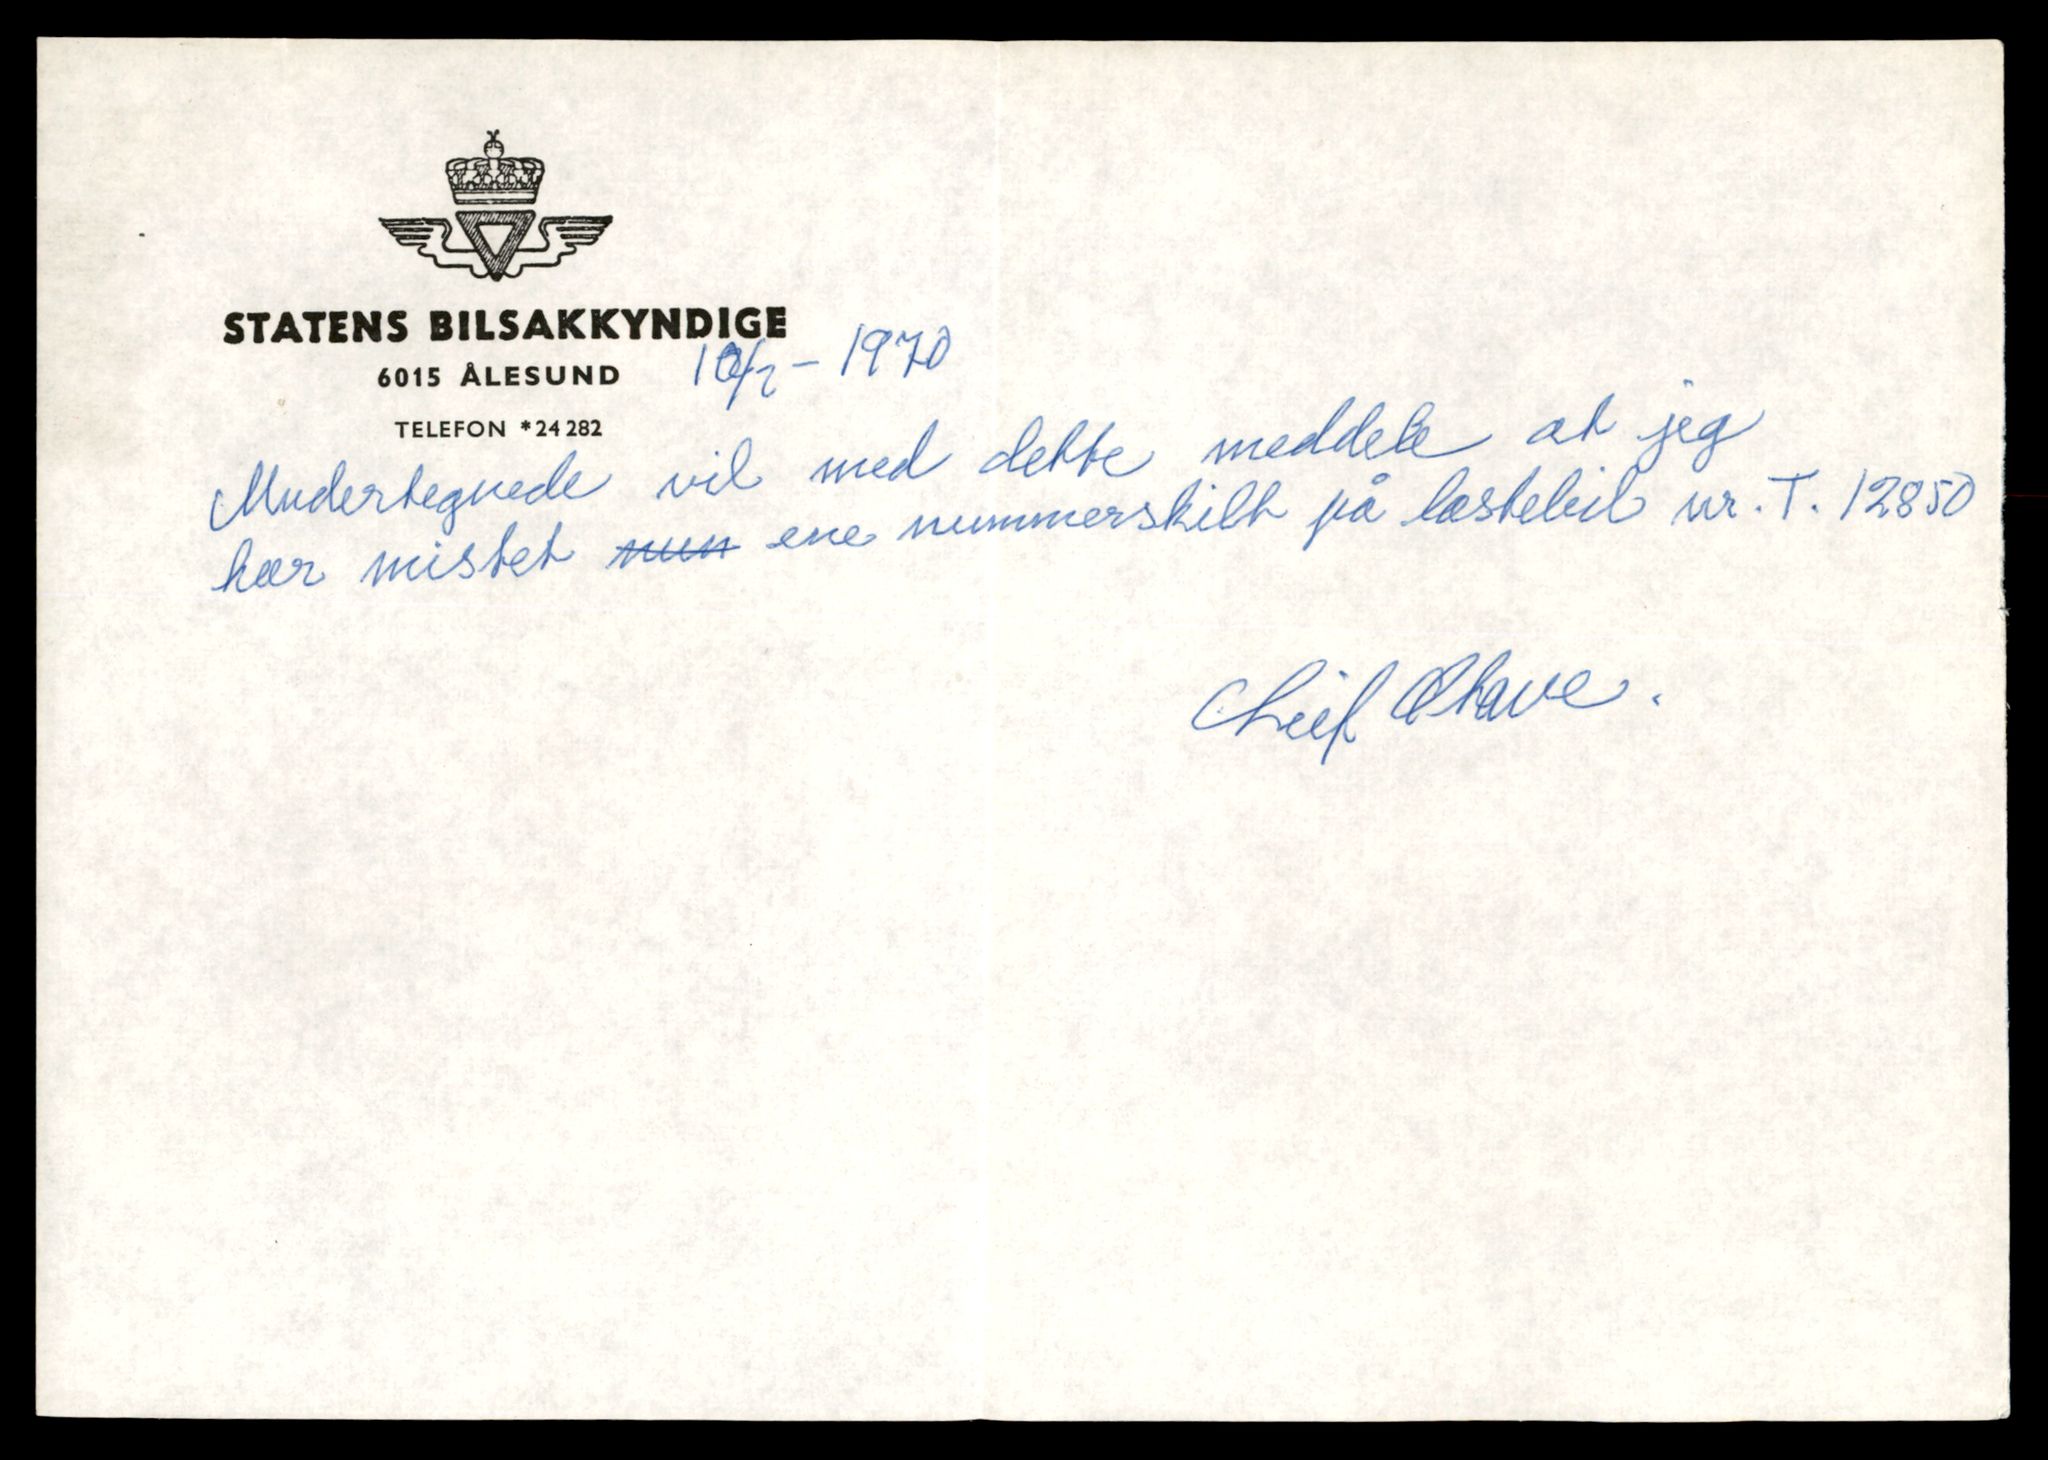 STATENS BILSAKKYNDIGE
6015 ÅLESUND
TELEFON *24 282
10/2 - 1970
Undertegnede vil med dette meddele at jeg
har mistet ~~num~~ ene nummerskilt på lastebil nr. T. 12850
Leif